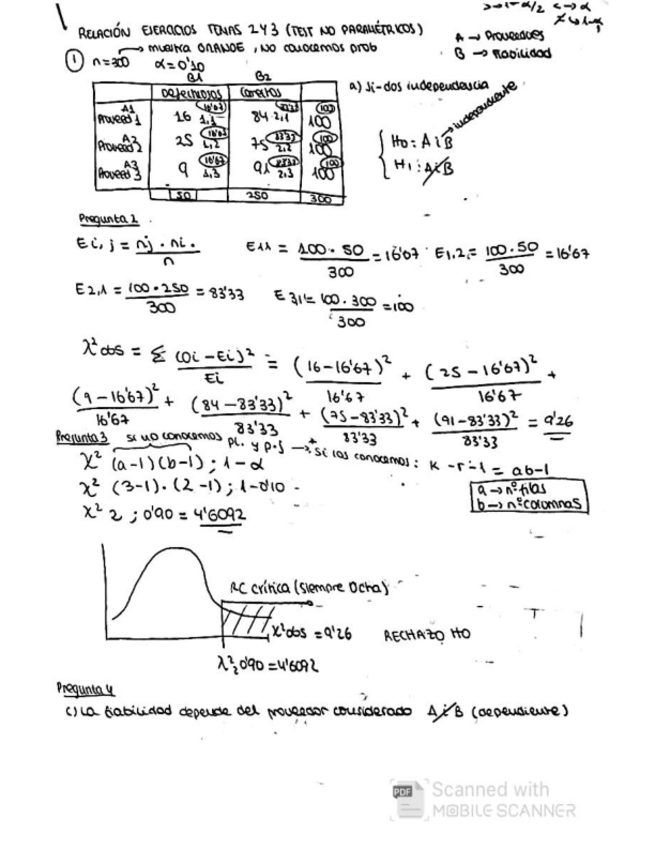 > → 1-α/2  < → α
≠ → 1-α/2
RELACIÓN EJERCICIOS TEMAS 2 Y 3 (TEST NO PARAMÉTRICOS)
A → Proveedores
→ muestra GRANDE, NO conocemos prob
B → Fiabilidad
① n=300  α=0'10
B1  B2
Defectuosos  Correctos
a) Ji-dos independencia
→ independiente
A1 Proveed 1  16 (16'67) 1,1  84 (83'33) 2,1  (100) 100
A2 Proveed 2  25 (16'67) 1,2  75 (83'33) 2,2  (100) 100
A3 Proveed 3  9 (16'67) 1,3  91 (83'33) 2,3  (100) 100
50  250  300
H0: A i B
H1: A i B
Pregunta 2.
Ei,j = nj · ni· / n  E1,1 = 100 · 50 / 300 = 16'67  E1,2 = 100 · 50 / 300 = 16'67
E2,1 = 100 · 250 / 300 = 83'33  E3,1 = 100 · 300 / 300 = 100
χ² obs = Σ (Oi - Ei)² / Ei = (16 - 16'67)² / 16'67 + (25 - 16'67)² / 16'67 +
(9 - 16'67)² / 16'67 + (84 - 83'33)² / 83'33 + (75 - 83'33)² / 83'33 + (91 - 83'33)² / 83'33 = 9'26
Pregunta 3  si no conocemos pi. y p.j → si las conocemos: K - r - 1 = ab - 1
χ² (a-1)(b-1); 1-α
χ² (3-1)·(2-1); 1-0'10
a → nº filas
b → nº columnas
χ² 2; 0'90 = 4'6092
RC crítica (siempre Dcha)
χ² obs = 9'26  RECHAZO H0
χ²2, 0'90 = 4'6092
Pregunta 4
c) La fiabilidad depende del proveedor considerado A i B (dependiente)
PDF Scanned with
MOBILE SCANNER